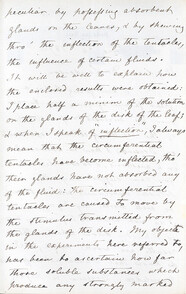 peculiar by possessing absorbent
glands on the leaves, & by shewing
thro' the inflection of the tentacles,
the influence of certain fluids.
It will be well to explain how
the enclosed results were obtained:
I place half a minim of the solution
on the glands of the disk of the leaf;
& when I speak of "inflection", I always
mean that the circumferential
tentacles have become inflected, tho'
their glands have not absorbed any
of the fluid: the circumferential
tentacles are caused to move by
the stimulus transmitted from
the glands of the disk. My object
in the experiments here referred to
has been to ascertain how far
those soluble substances which
produce any strongly marked